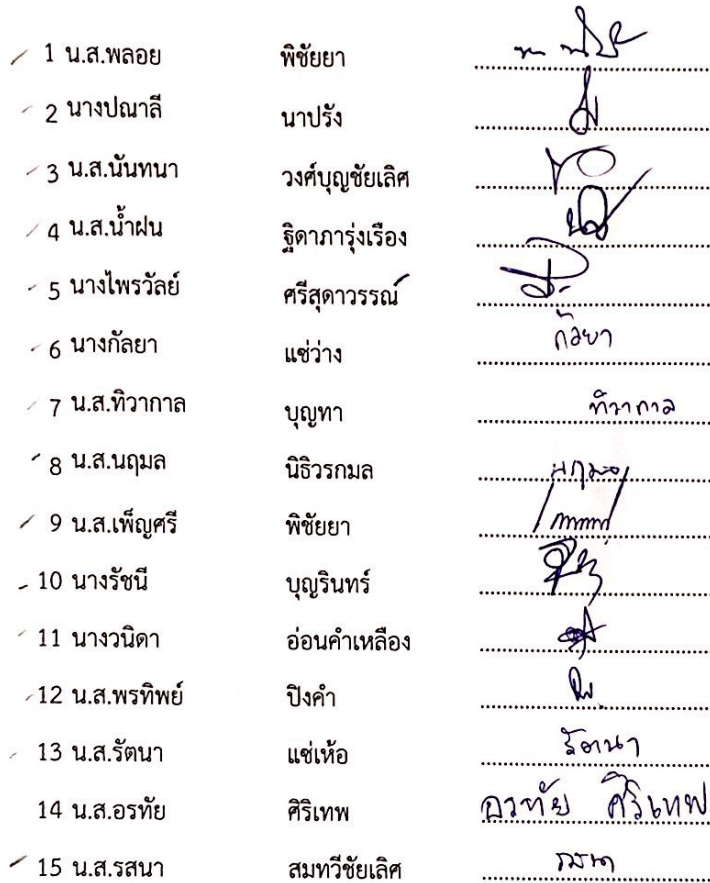 1 น.ส.พลอย พิชัยยา
2 นางปณาลี นาปรัง
3 น.ส.นันทนา วงศ์บุญชัยเลิศ
4 น.ส.น้ำฝน ฐิดาภารุ่งเรือง
5 นางไพรวัลย์ ศรีสุดาวรรณ์
6 นางกัลยา แซ่ว่าง กัลยา
7 น.ส.ทิวากาล บุญทา ทิวากาล
8 น.ส.นฤมล นิธิวรกมล นฤมล
9 น.ส.เพ็ญศรี พิชัยยา
10 นางรัชนี บุญรินทร์
11 นางวนิดา อ่อนคำเหลือง
12 น.ส.พรทิพย์ ปิงคำ
13 น.ส.รัตนา แซ่เห้อ รัตนา
14 น.ส.อรทัย ศิริเทพ อรทัย ศิริเทพ
15 น.ส.รสนา สมทวีชัยเลิศ รสนา